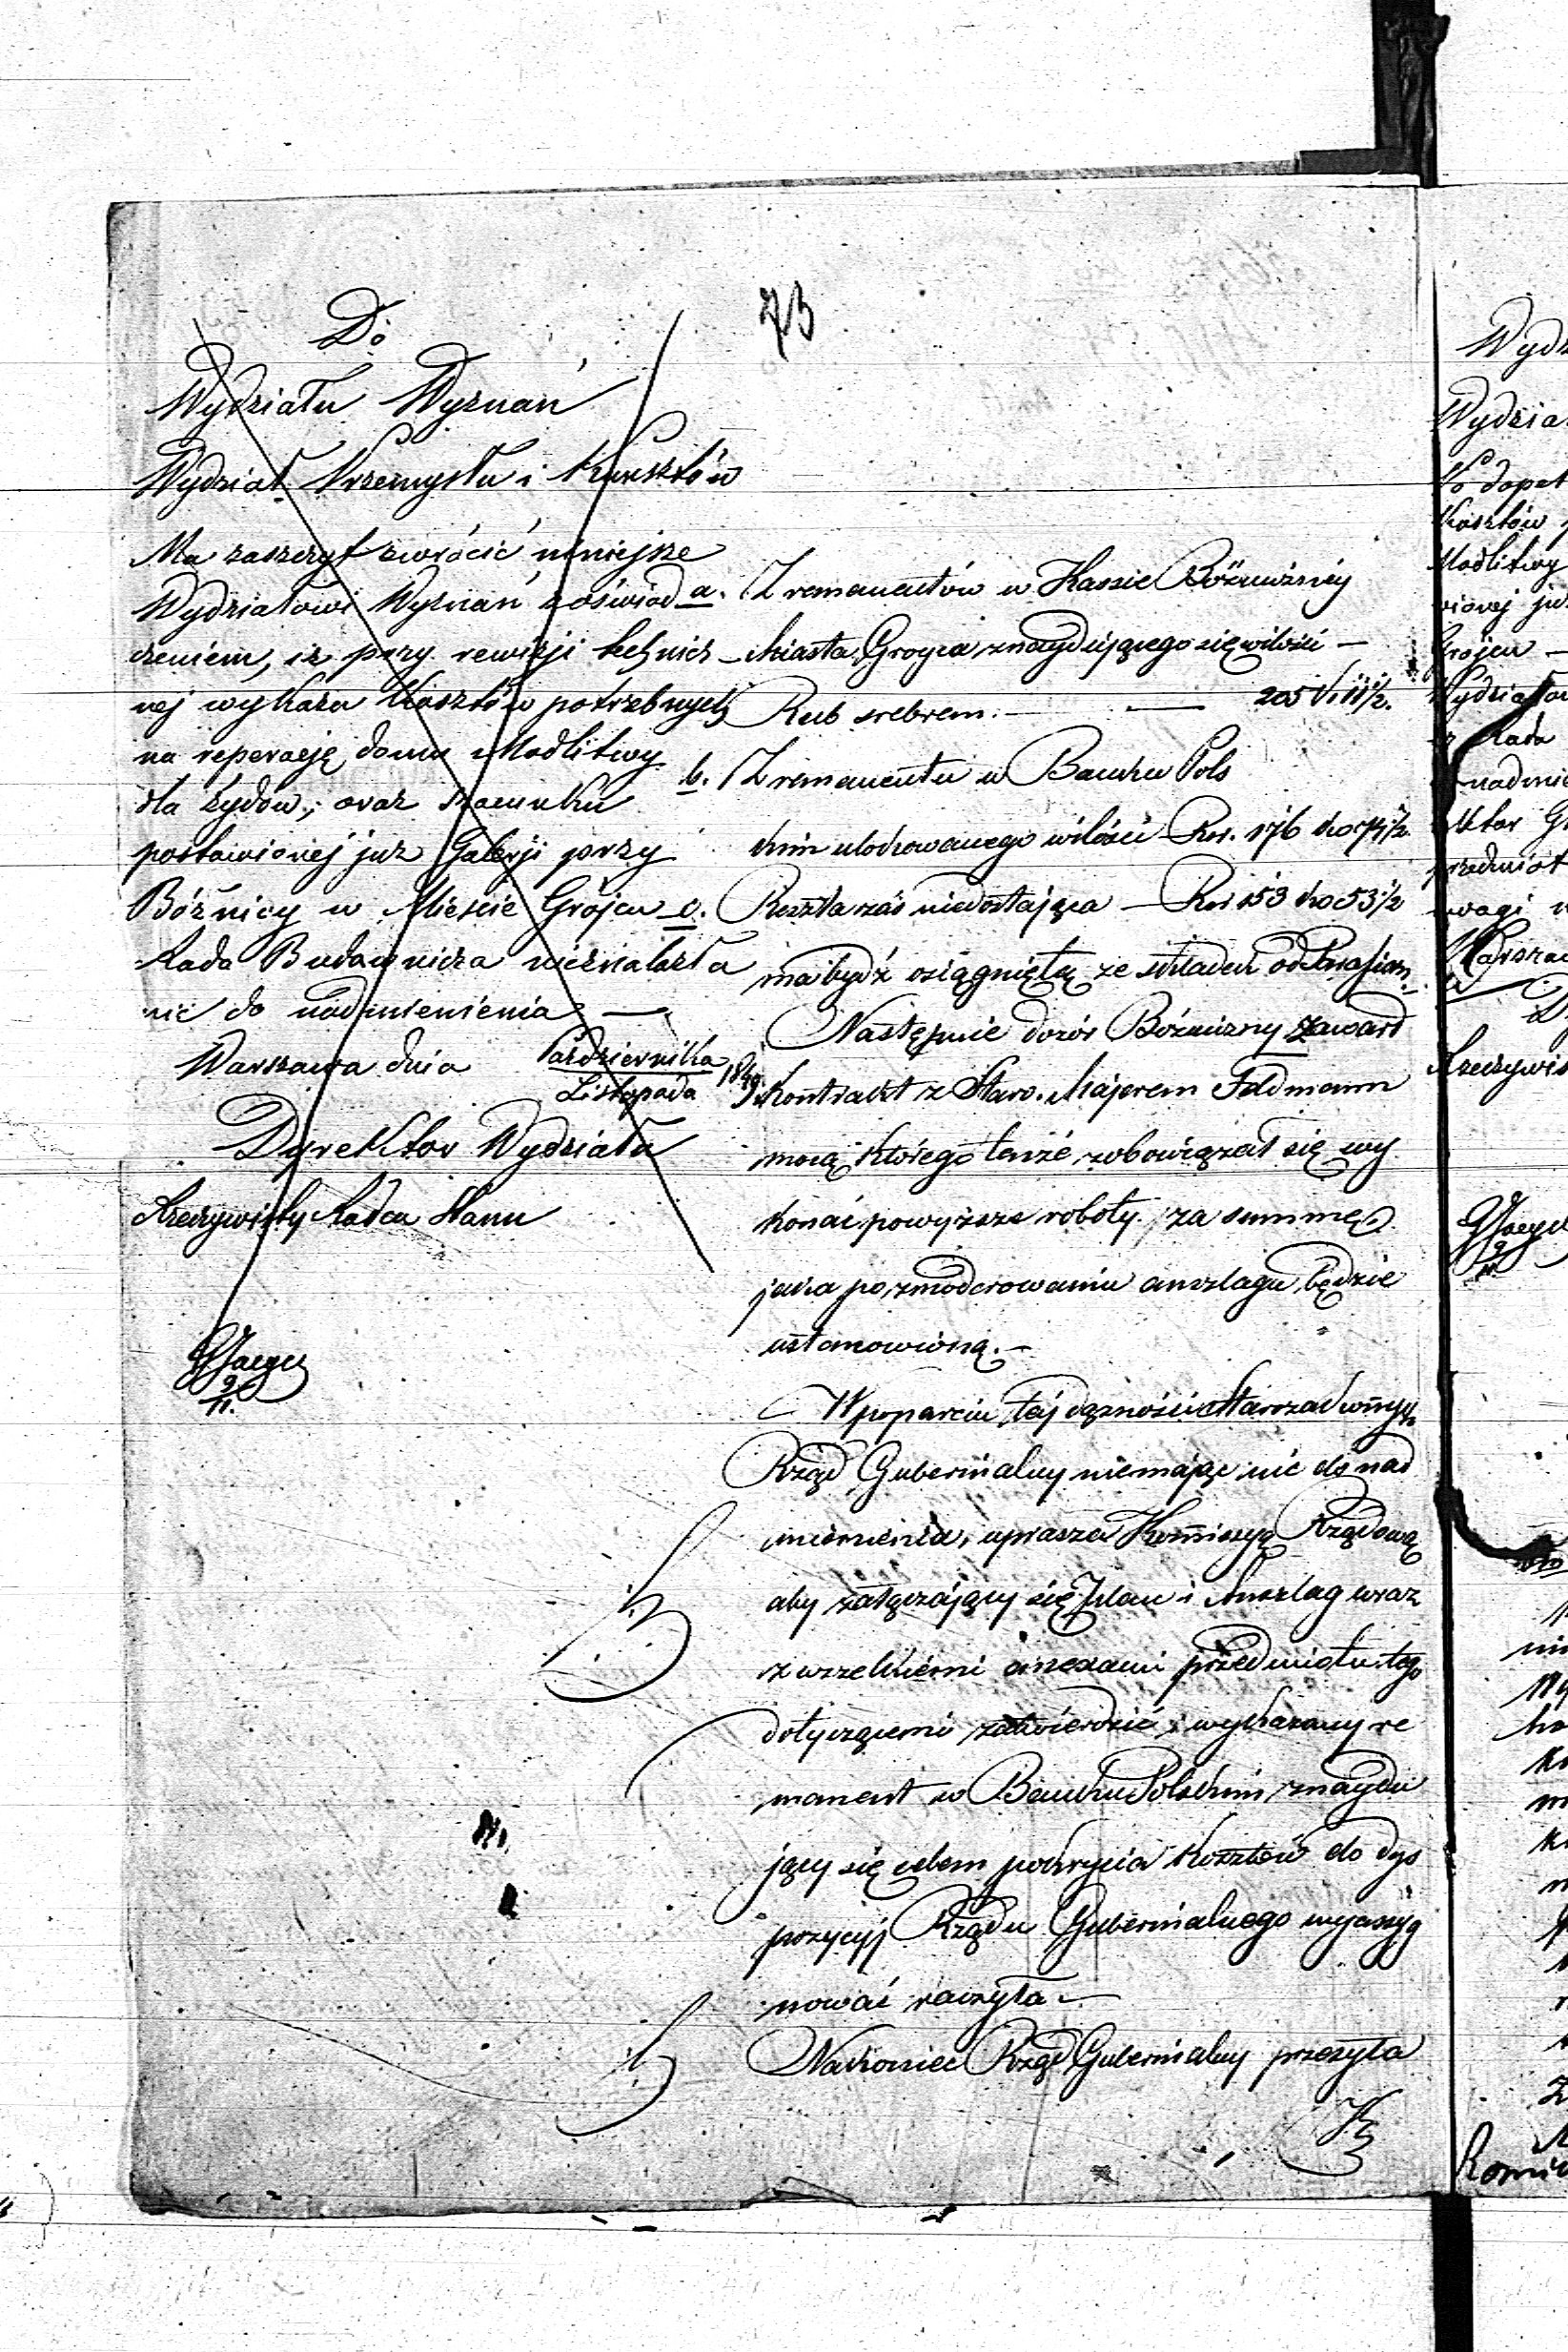 73
Do
Wydziału Wyznań
Wydział Przemysłu i Kunsztów
Ma zaszczyt zwrócić niniejsze
Wydziałowi Wyznań z oświad
czeniem, iż przy rewizji technicz
nej wykazu Kosztów potrzebnych
na reperację domu Modlitwy
dla żydów, oraz szacunku
postawionej już Galerji przy
Bóżnicy w Mieście Grójcu
Rada Budownicza nieznalazła
nic do nadmienienia —
Warszawa dnia Października / Listopada 1849
Dyrektor Wydziału
Rzeczywisty Radca Stanu
Jaeger
9/11.
a. Z remanentów w Kassie Bóżniczney
Miasta Grojca znaydującego się wilości —
Rub srebrem. — — 205
b. Z remanentu w Banku Pols
kim ulokowanego wilości Rsr. 176 ko 74 1/2.
c. Reszta zaś niedostająca — Rsr 153 ko 53 1/2
ma bydź osiągniętą ze składek od Parafian.
Następnie dozór Bóżniczny zawarł
Kontrakt z Staro. Majerem Feldmann
mocą którego tenże zobowiązał się wy
konać powyższe roboty, za summę
jaka po zmoderowaniu anszlagu będzie
ustanowioną. —
W poparciu tej
Rząd Gubernialny niemając nic do nad
mienienia, uprasza Kommissyą Rządową
aby załączający się Plan i Anszlag wraz
z wszelkiemi anexami przedmiotu tego
dotyczącemi zatwierdzić i wykazany re
manent w Banku Polskim znaydu
jący się celem pokrycia kosztów do dys
pozycyj Rządu Gubernialnego wyassyg
nować raczyła —
Nakoniec Rząd Gubernialny przesyła